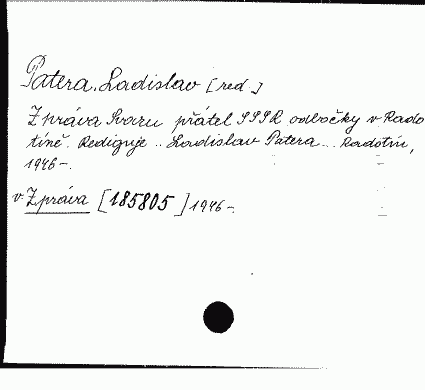 Patera, Ladislav [red.]
Zpráva Svazu přátel SSSR odbočky v Rado
tíně. Rediguje .. Ladislav Patera... Radotín,
1946-.
v. Zpráva [185805] 1946-.